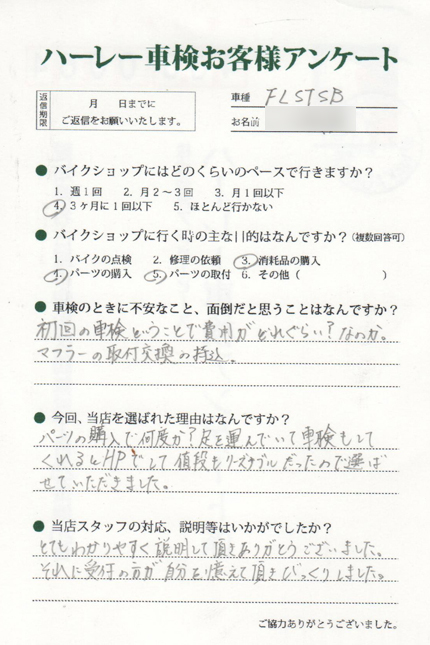 ハーレー車検お客様アンケート
返信期限
月　日までに
ご返信をお願いいたします。
車種 FLSTSB
お名前
● バイクショップにはどのくらいのペースで行きますか？
1. 週1回　2. 月2〜3回　3. 月1回以下
4. 3ヶ月に1回以下　5. ほとんど行かない
● バイクショップに行く時の主な目的はなんですか？（複数回答可）
1. バイクの点検　2. 修理の依頼　3. 消耗品の購入
4. パーツの購入　5. パーツの取付　6. その他（　　　　　）
● 車検のときに不安なこと、面倒だと思うことはなんですか？
初回の車検ということで費用がどれぐらい？なのか。
マフラーの取付交換の持込。
● 今回、当店を選ばれた理由はなんですか？
パーツの購入で何度か？足を運んでいて車検もして
くれるとHPでして値段もリーズナブルだったので選ば
せていただきました。
● 当店スタッフの対応、説明等はいかがでしたか？
とてもわかりやすく説明して頂きありがとうございました。
それに受付の方が自分を憶えて頂きびっくりしました。
ご協力ありがとうございました。